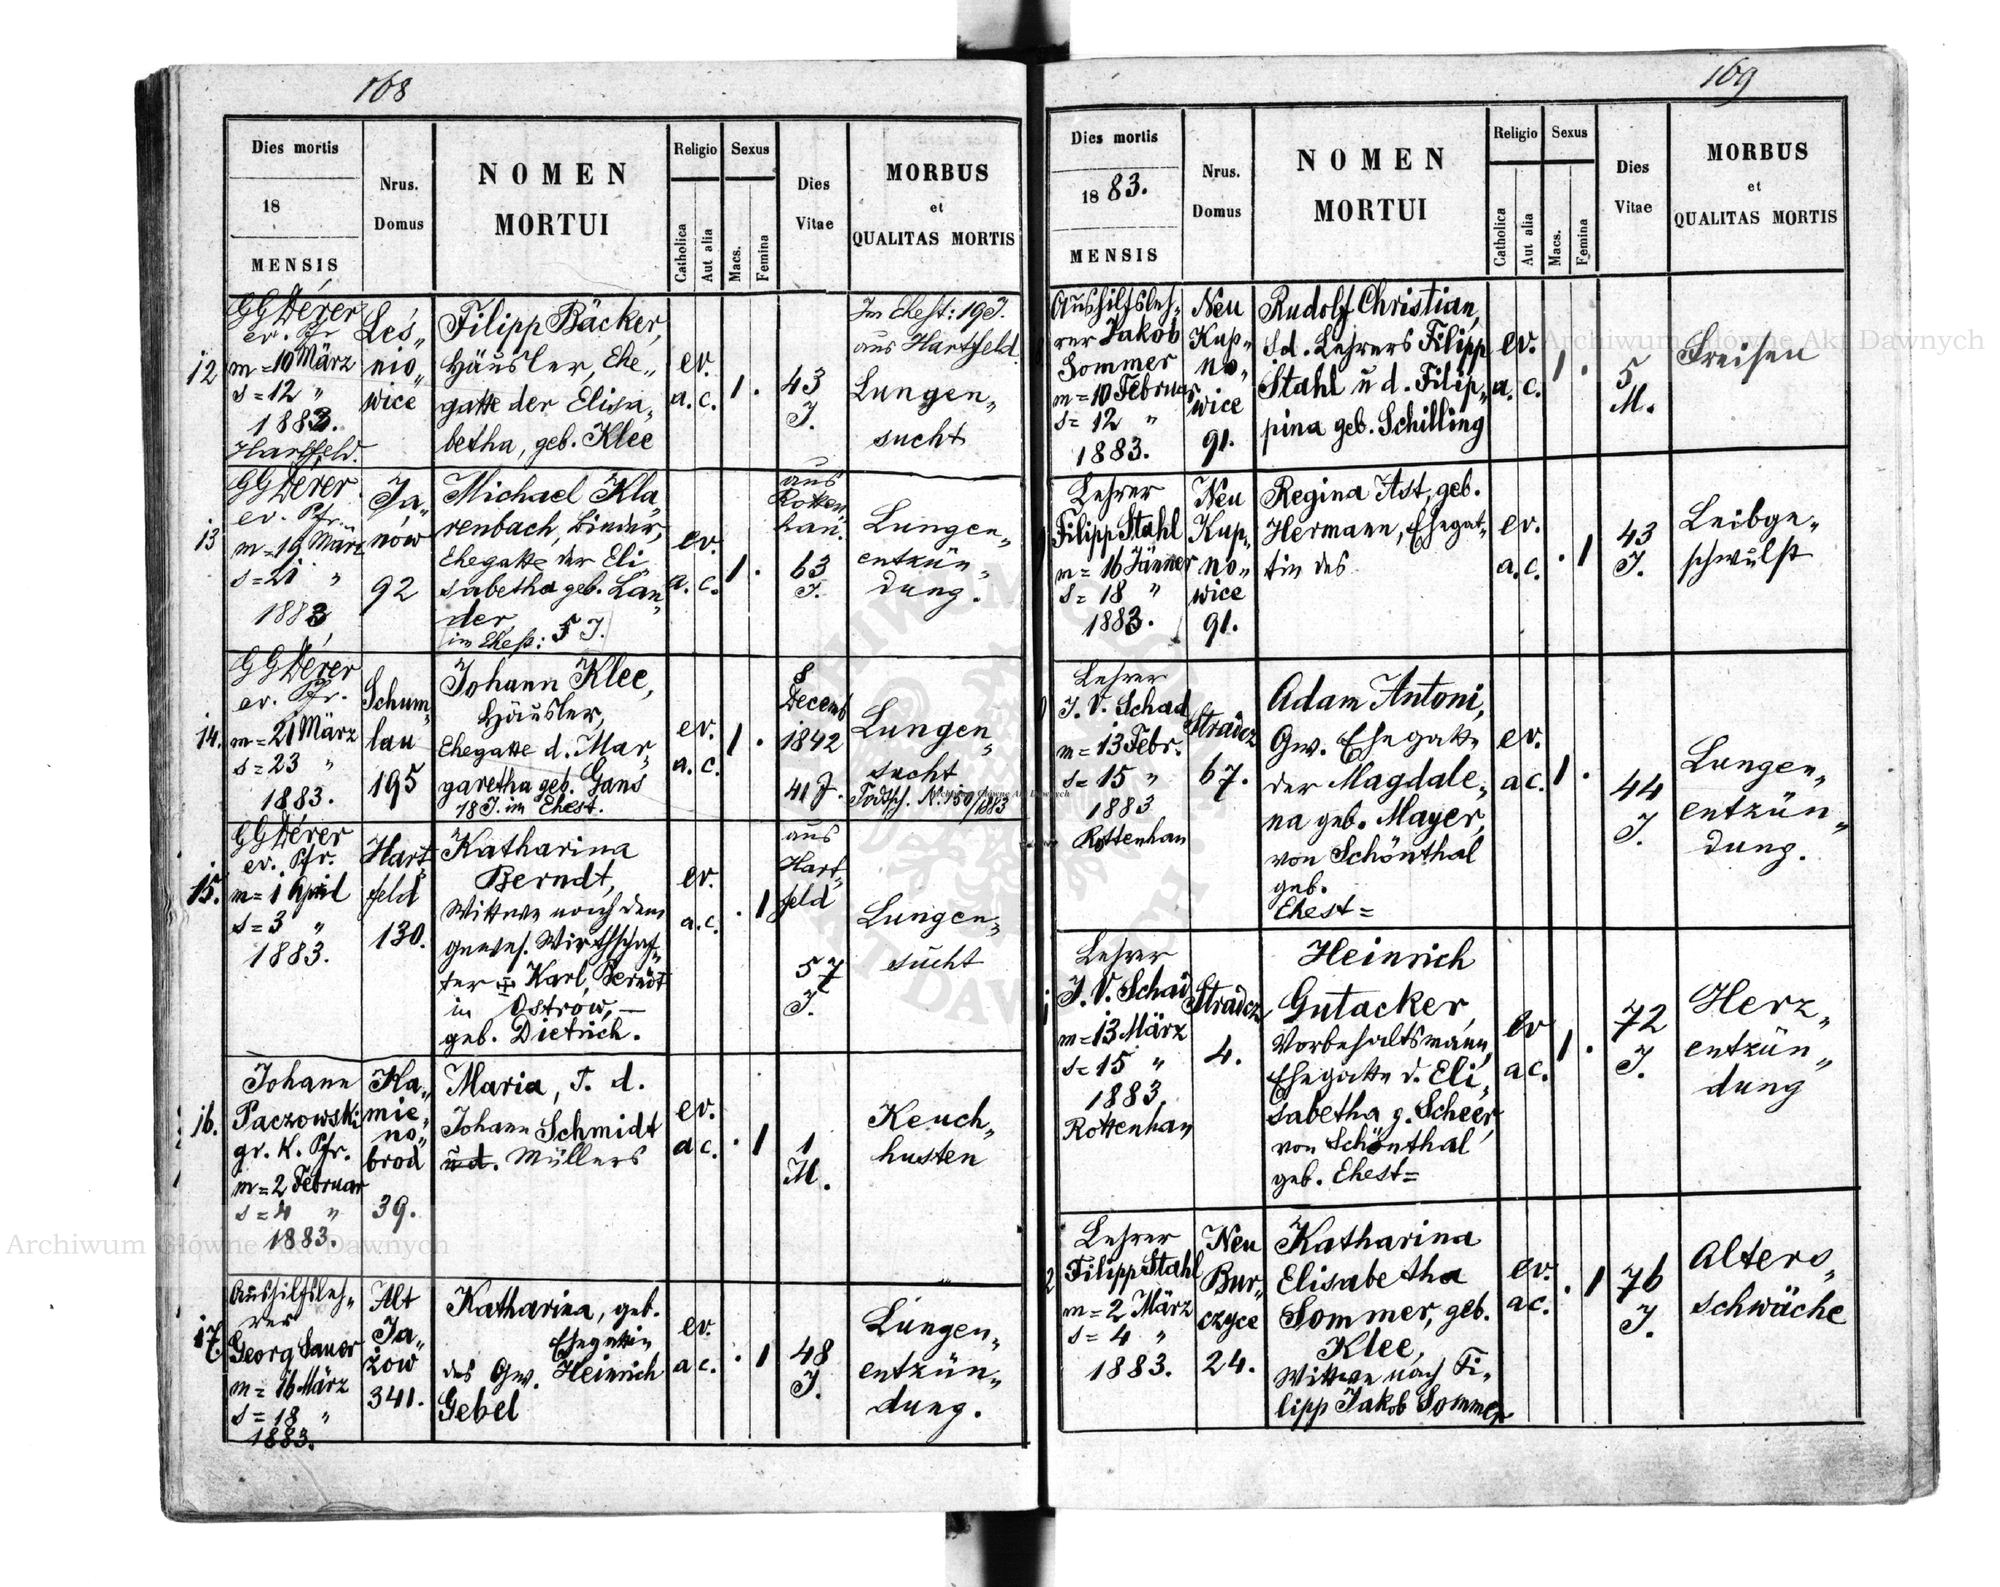 168
Dies mortis
18
MENSIS
Nrus.
Domus
NOMEN
MORTUI
Religio
Catholica
Aut alia
Sexus
Macs.
Femina
Dies
Vitae
MORBUS
et
QUALITAS MORTIS
12
GGDérer
ev. Pfr
m = 10 März
s = 12 "
1883.
Hartfeld.
Leś„
nio„
wice
Filipp Bäcker,
Häusler, Ehe„
gatte der Elisa„
betha, geb. Klee
ev.
a. c.
1.
43
J.
Im Ehest: 19 J.
aus Hartfeld
Lungen„
sucht
13
GGDérer
ev. Pfr.
m = 19 März
s = 21 "
1883
Ja„
nów
92
Michael Kla„
renbach, Binder,
Ehegatte der Eli„
sabetha geb. Lan„
der,
im Ehest: 5 J.
ev.
a. c.
1.
aus
Rotten„
han.
63
J.
Lungen„
entzün„
dung.
14.
GGDérer
ev. Pfr.
m = 21 März
s = 23 "
1883.
Schum„
lau
195
Johann Klee,
Häusler,
Ehegatte d. Mar„
garetha geb. Gans
18 J. im Ehest.
ev.
a. c.
1.
8
Decemb
1842
41 J.
Lungen„
sucht
Todtsch. N. 150/1883
15.
GGDérer
ev. Pfr.
m = 1 April
s = 3 "
1883.
Hart„
feld
130.
Katharina
Berndt,
Wittwe nach dem
gewes. Wirthschaf„
ter Karl Berndt
in Ostrów, —
geb. Dietrich.
ev.
a. c.
. 1
aus
Hart„
feld
57
J.
Lungen„
sucht
16.
Johann
Paczowski
gr. K. Pfr.
m = 2 Februar
s = 4 "
1883.
Ka„
mie„
no„
brod
39.
Maria, T. d.
Johann Schmidt
u d. Müllers
ev.
a c.
. 1
1
M.
Keuch„
husten
17
Aushilfsleh„
rer
Georg Sauer
m = 16 März
s = 18 "
1883.
Alt
Ja„
zow
341.
Katharina, geb.
Ehegattin
des Gw. Heinrich
Gebel
ev.
a c.
. 1
48
J.
Lungen„
entzün„
dung.
169
Dies mortis
18 83.
MENSIS
Nrus.
Domus
NOMEN
MORTUI
Religio
Catholica
Aut alia
Sexus
Macs.
Femina
Dies
Vitae
MORBUS
et
QUALITAS MORTIS
Aushilfsleh„
rer Jakob
Sommer
m = 10 Februar
s = 12 "
1883.
Neu
Kup„
no„
wice
91.
Rudolf Christian,
S d. Lehrers Filipp
Stahl u d. Filip„
pina geb. Schilling
ev.
a. c.
1.
5
M.
Freisen
Lehrer
Filipp Stahl
m = 16 Jänner
s = 18 "
1883.
Neu
Kup„
no„
wice
91.
Regina Ast, geb.
Hermann, Ehegat„
tin des
ev.
a. c.
. 1
43
J.
Leibge„
schwulst
Lehrer
J. V. Schad
m = 13 Febr.
s = 15 "
1883
Rottenhan
Stradcz
67.
Adam Antoni,
Gw. Ehegatte
der Magdale„
na geb. Mayer,
von Schönthal
geb.
Ehest =
ev.
a c.
1.
44
J.
Lungen„
entzün„
dung.
Lehrer
J. V. Schad
m = 13 März
s = 15 "
1883.
Rottenhan
Stradcz
4.
Heinrich
Gutacker,
Vorbehaltsmann,
Ehegatte d. Eli„
sabetha g. Scheer,
von Schönthal
geb. Ehest =
ev
a c.
1.
72
J.
Herz„
entzün„
dung
2
Lehrer
Filipp Stahl
m = 2 März
s = 4 "
1883.
Neu
Bur„
czyce
24.
Katharina
Elisabetha
Sommer, geb.
Klee,
Wittwe nach Fi„
lipp Jakob Sommer
ev.
a c.
. 1
76
J.
Alters„
schwäche
Archiwum Główne Akt Dawnych
Archiwum Główne Akt Dawnych
Archiwum Główne Akt Dawnych